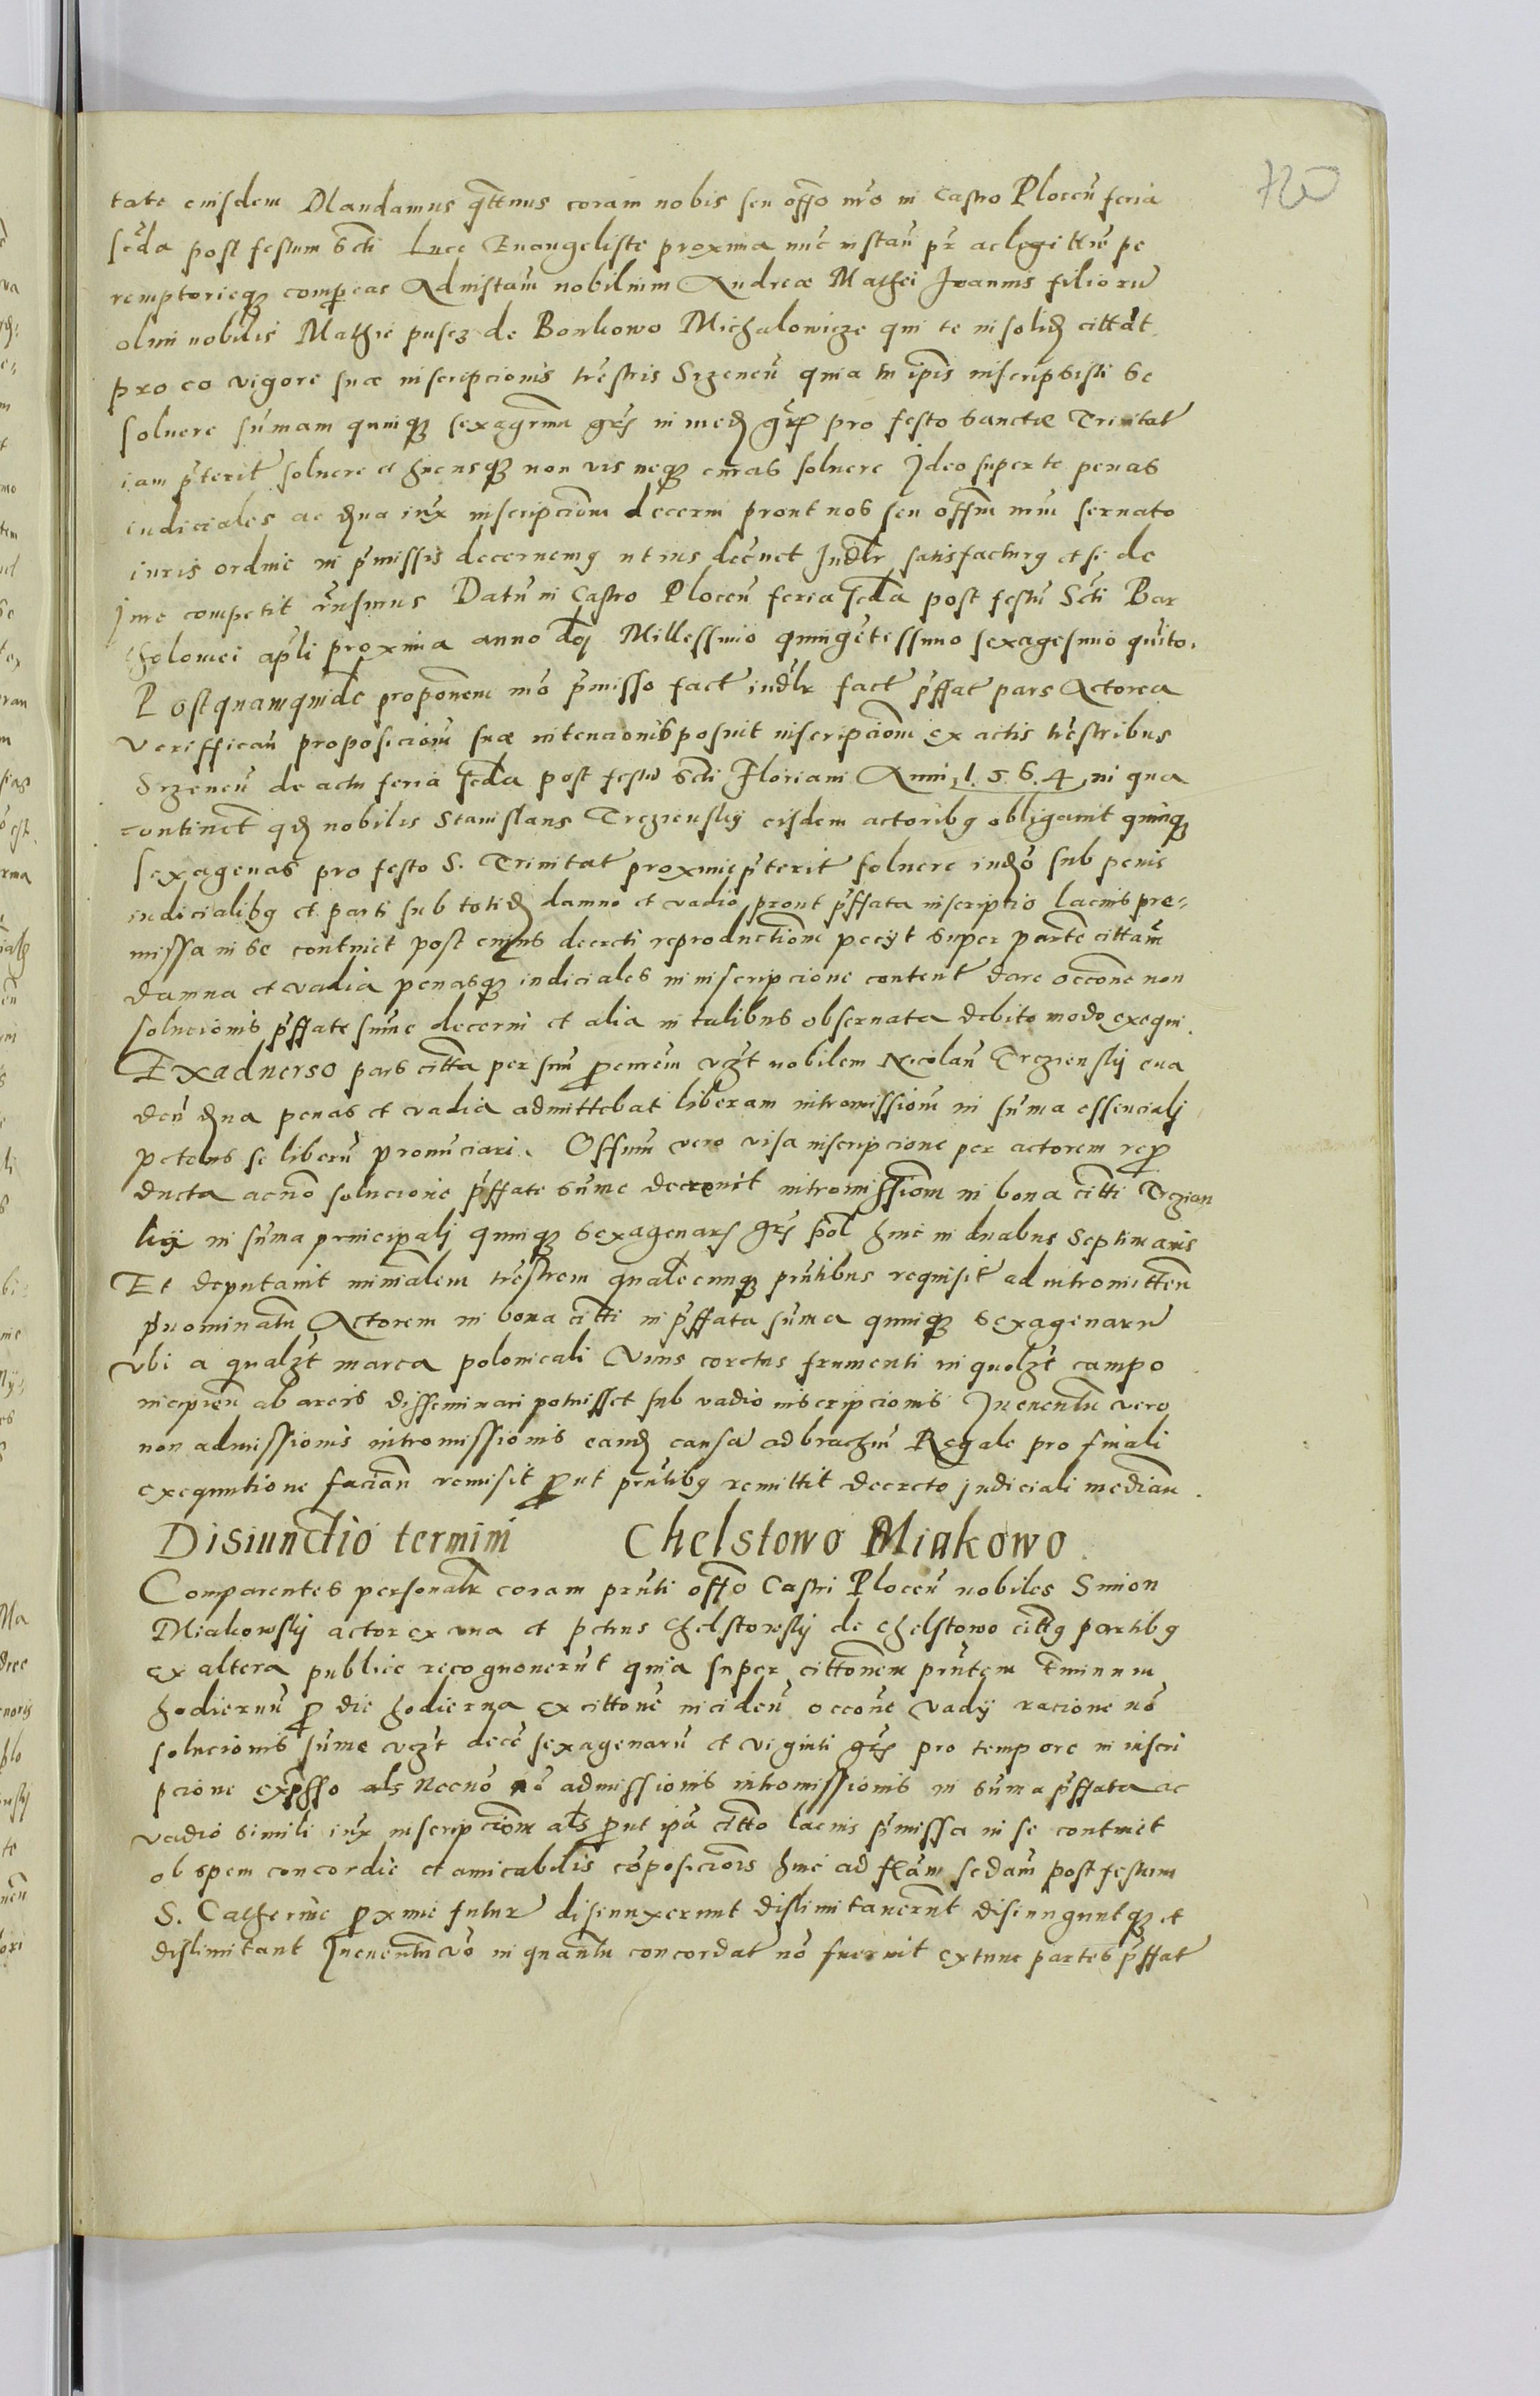 720
tate eiusdem Mandamus qttenus coram nobis seu offo nro in Castro Plocen feria
scda post festum Scti Luce Euangeliste proxima nunc instan pr ac legittime pe
remptorieqz compareas Ad instam nobilium Andreæ Mathei Joannis filioru
olim nobilis Mathie pusez de Borkowo Michalowicze qui te in solid cittat
pro eo vigore suæ inscripcionis trestris Srzenen quia tu ipis inscripsisti se
soluere sumam quinqz sexagenarum grs in med grp pro festo Sanctæ Trinitat
iam pterit soluere et hucusqz non vis neqz curas soluere Ideo super te penas
iudiciales ac dna iux inscripciom decerni prout nos seu offm nrm seruato
iuris ordine in pmissis decernemg ut ius docuet Judlr satisfacturg et si de
Jure competit rnsurus Datu in Castro Plocen feria scda post festu Scti Bar
tholomei apli proxima anno doj Millessimo quingetessimo sexagesimo quito.
Postquamquide proponem mo pmisso fact iudlr fact pffat pars Actorea
verifficau proposicioni suæ intencionis posuit inscripciom ex actis trestribus
Srzenen de actu feria scda post festu Scti Floriani Anni 1.5.6.4 in qua
continet qd nobilis Stanislaus Trczienskij eisdem actoribg obligauit quinqz
sexagenas pro festo S. Trinitat proxime pterit soluere indo sub penis
iudicialibg et parti sub totid damno et vadio prout pffata inscriptio lacius pre-
missa in se continet post cuius decreti reproductiom pecijt super parte cittam
damna et vadia penasqz iudiciales in inscripcione content dare occone non
solucionis pffate sume decerni et alia in talibus obseruata debito modo exequi.
Ex aduerso pars citta per sum procurem vczt nobilem Nicolau Trczienskij eua
den dna penas et vadia admittebat liberam intromissiom in suma essencialj
petens se liberu pronunciari. Offium vero visa inscripcione per actorem repro
ducta ac no solucione pffate sume decreuit intromissiom in bona citti Trczien
skij in suma principalj quinqz sexagenars grs pol hinc in duabus Septimanis
Et deputauit minialem trestrem qualecunqz pntibus requisit ad intromitten
pnominatu Actorem in bona citti in pffata suma quinqz sexagenaru
vbi a qualzt marca polonicali Vnus coretus frumenti in quolzt campo
incipien ab areis disseminari potuisset sub vadio inscripcionis Jn euentu vero
non admissionis intromissionis eand causa ad brachiu Regale pro finali
exequutione facian remisit prout pntibg remittit decreto judiciali median.
Disiunctio termini Chelstowo Miakowo.
Comparentes personalr coram pnti offo Castri Plocen nobiles Simon
Miakowskij actor ex vna et petrus Chelstowskij de Chelstowo cittg partibg
ex altera publice recognouerunt quia super cittonem pntem Tminum
hodiernu pro die hodierna ex cittone inciden occone Vadij racione no
solucionis sume vczt dece sexagenaru et viginti grs pro tempore in inscri
pcione expsso als Necno no admissionis intromissionis in suma pffata ac
vadio simili iux inscripciom als prout ipa citto lacius pmissa in se continet
ob spem concordie et amicabilis coposiciois hinc ad fiam sedam post festum
S. Catherine proxime futur disiunxerunt dislimitauerunt disiunguntqz et
dislimitant Jn euentu vo in quantu concordat no fuerint extunc partes pffat